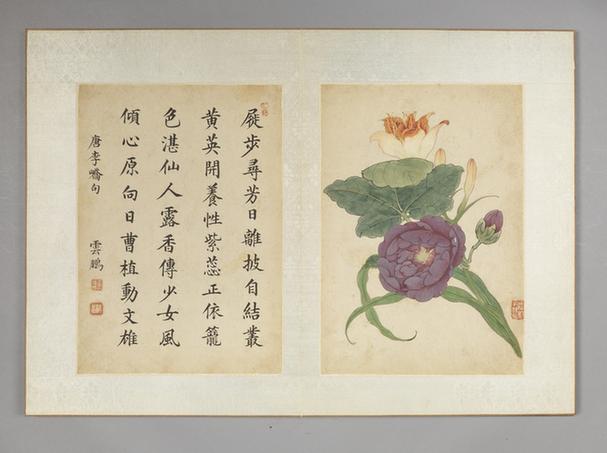 屣步尋芳日離披自結叢
黃英開養性紫蕊正依籠
色湛仙人露香傳少女風
傾心原向日曹植動文雄
唐李嶠句
雲鵬